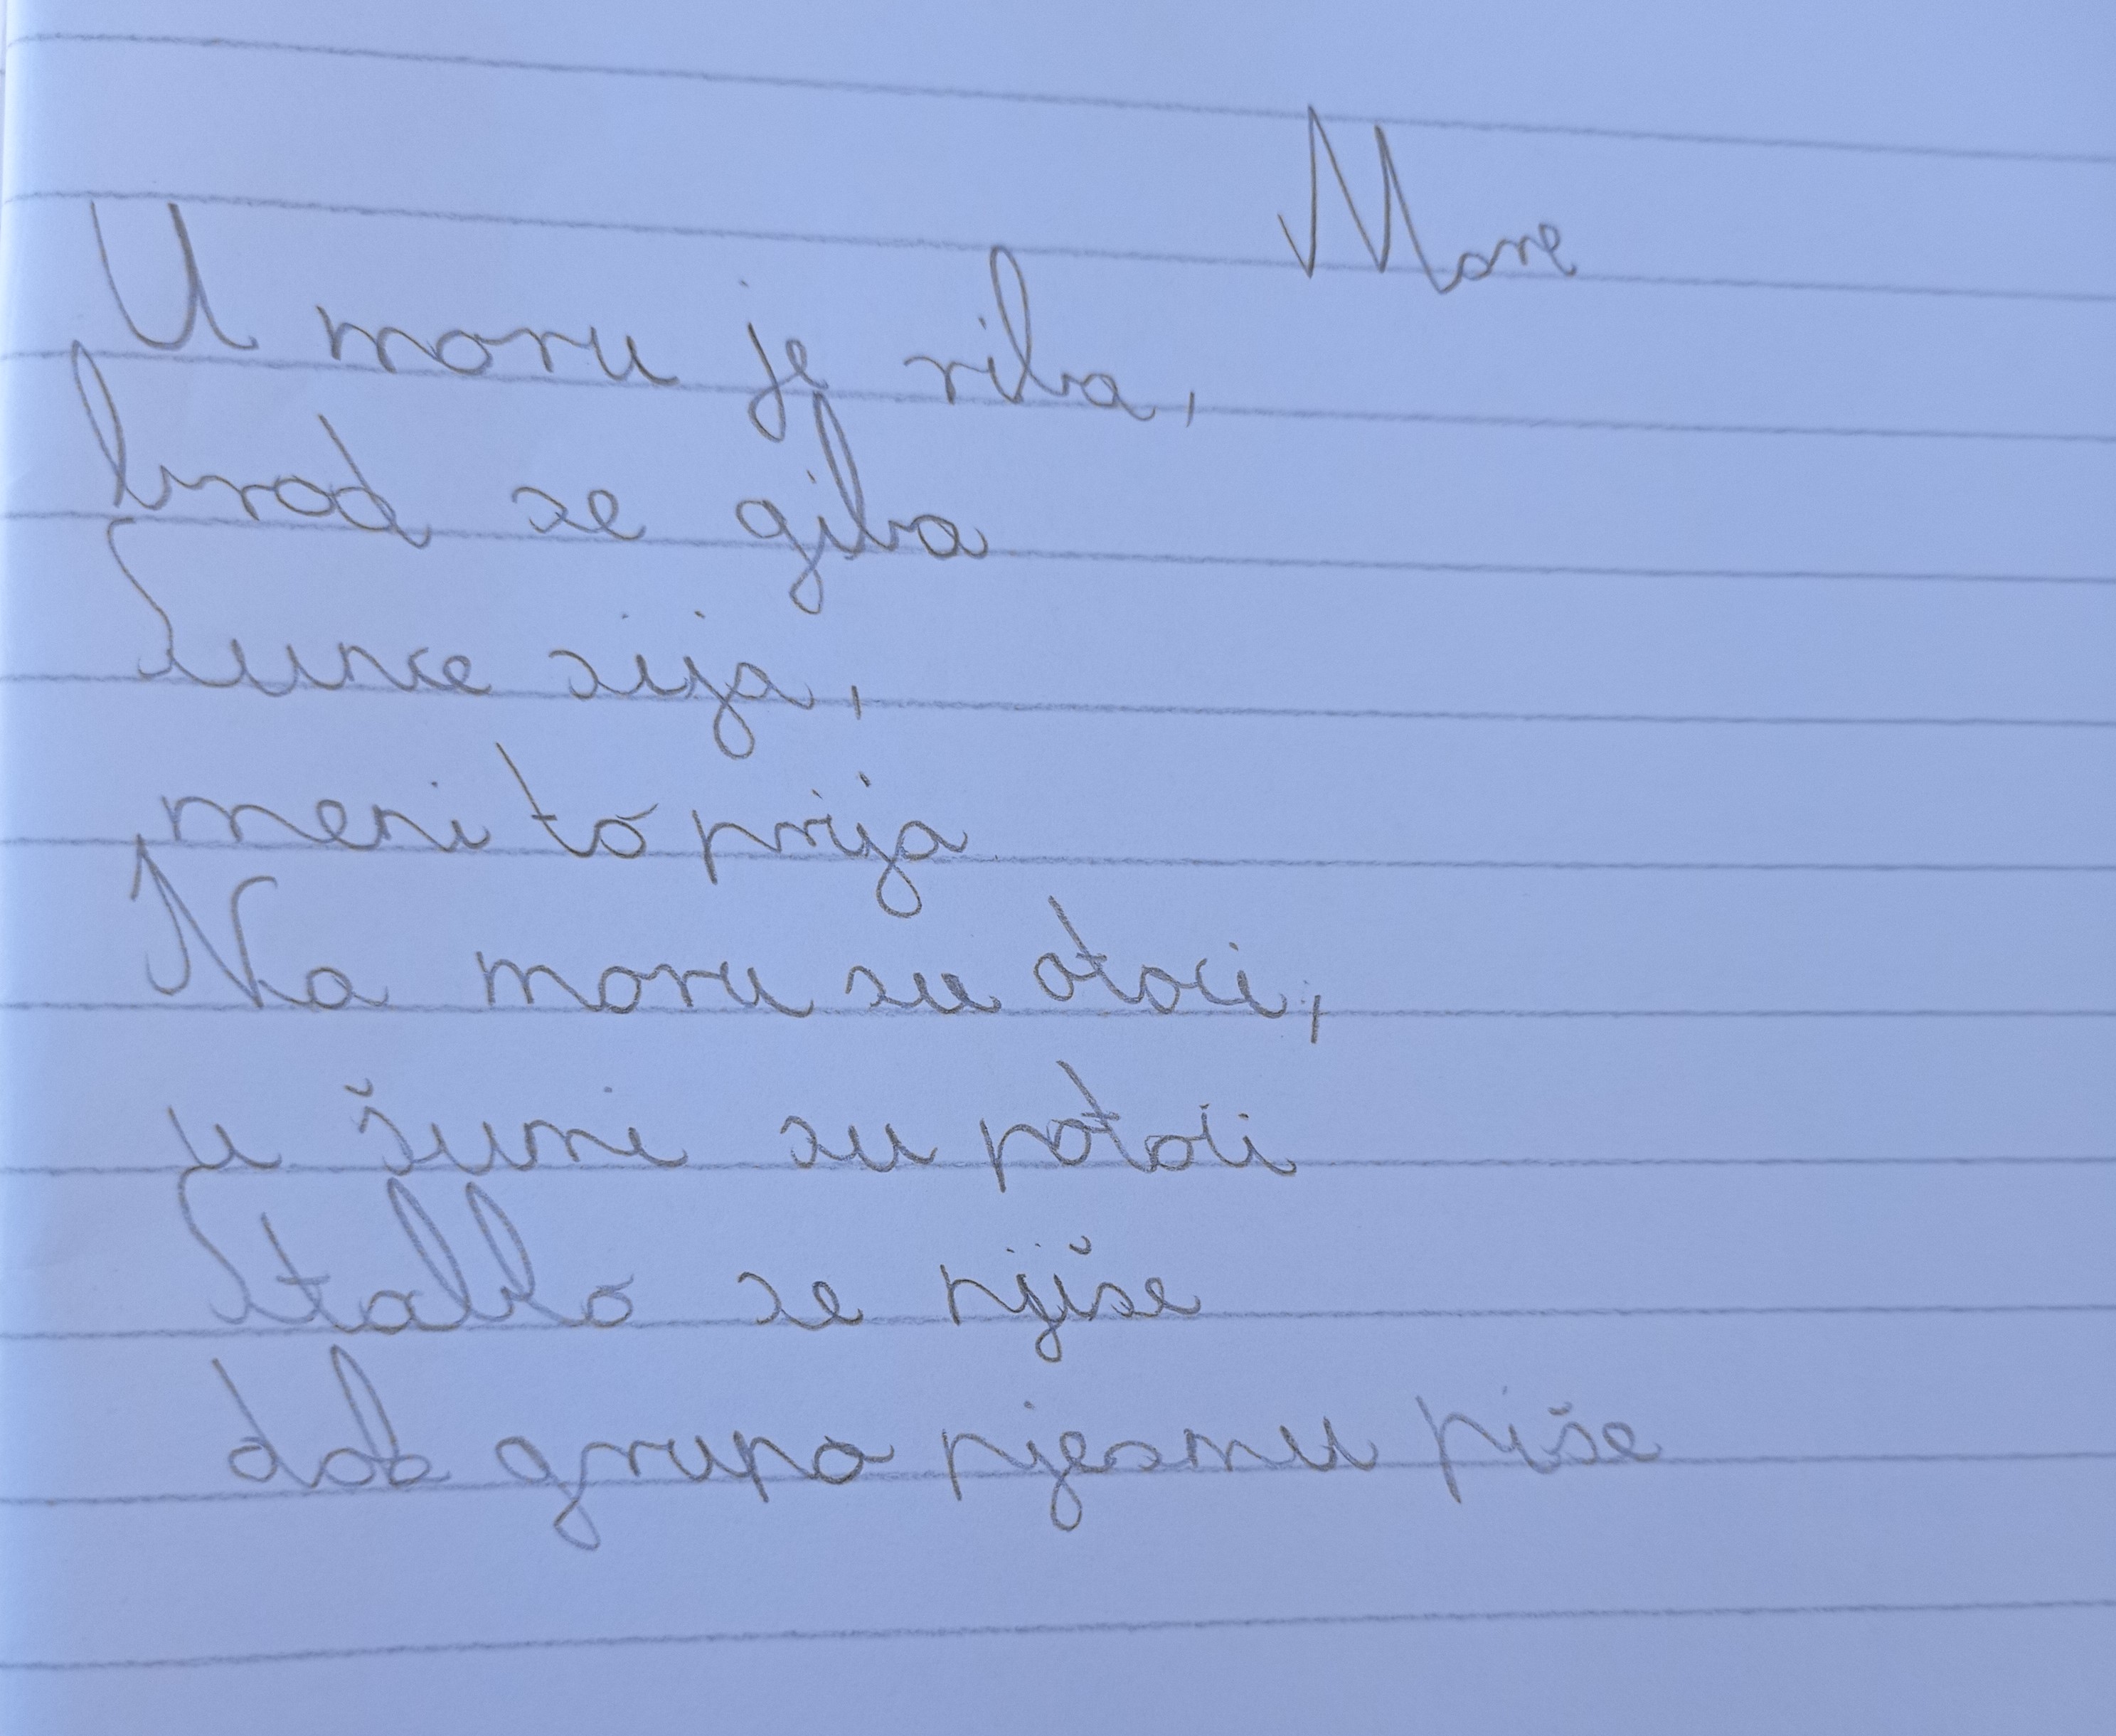 More
U moru je riba,
brod se giba
Sunce sija,
meni to prija
Na moru su otoci,
u šumi su potoci
Stablo se njiše
dok grupa pjesmu piše